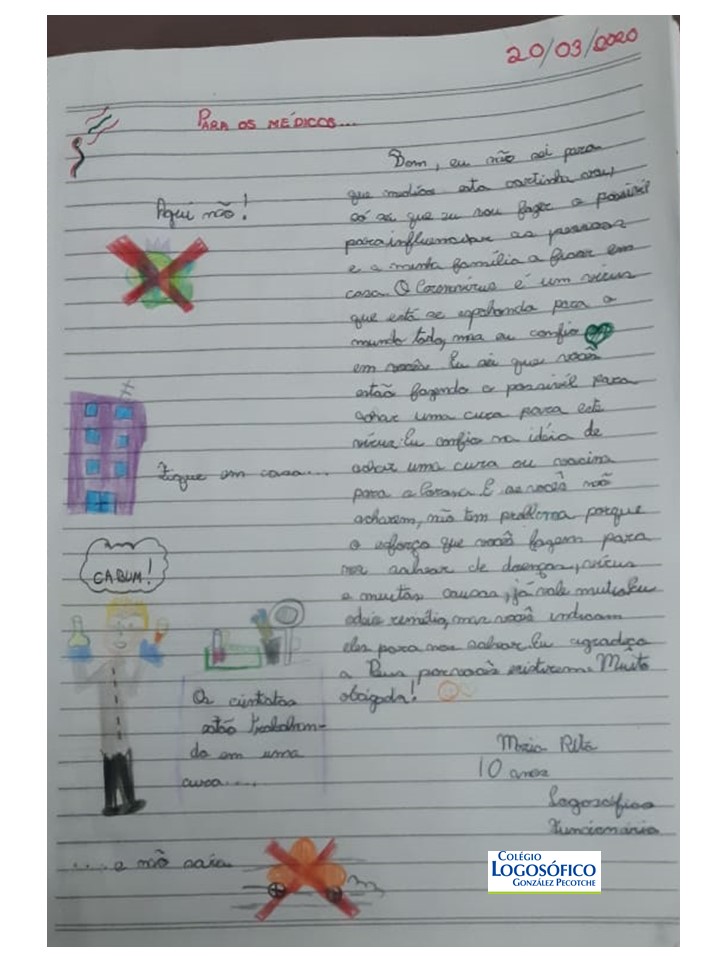 20/03/2020
PARA OS MÉDICOS...
Bom, eu não sei para
que médicos esta cartinha vai,
só sei que eu vou fazer o possível
para influenciar as pessoas
e a minha família a ficar em
casa. O Coronavírus é um vírus
que está se espalhando para o
mundo todo, mas eu confio
em vocês. Eu sei que vocês
estão fazendo o possível para
achar uma cura para este
vírus. Eu confio na idéia de
achar uma cura ou vacina
para o Corona. E se vocês não
acharem, não tem problema porque
o esforço que vocês fazem para
nos salvar de doenças, vírus
e muitas causas, já vale muito. Eu
odeio remédio, mas vocês indicam
eles para nos salvar. Eu agradeço
a Deus por vocês existirem. Muito
obrigada!
Maria Rita
10 anos
Logosófico
Funcionário
Aqui não!
Fique em casa...
CABUM!
Os cientistas
estão trabalhan-
do em uma
cura....
....e não saia
COLÉGIO
LOGOSÓFICO
GONZÁLEZ PECOTCHE